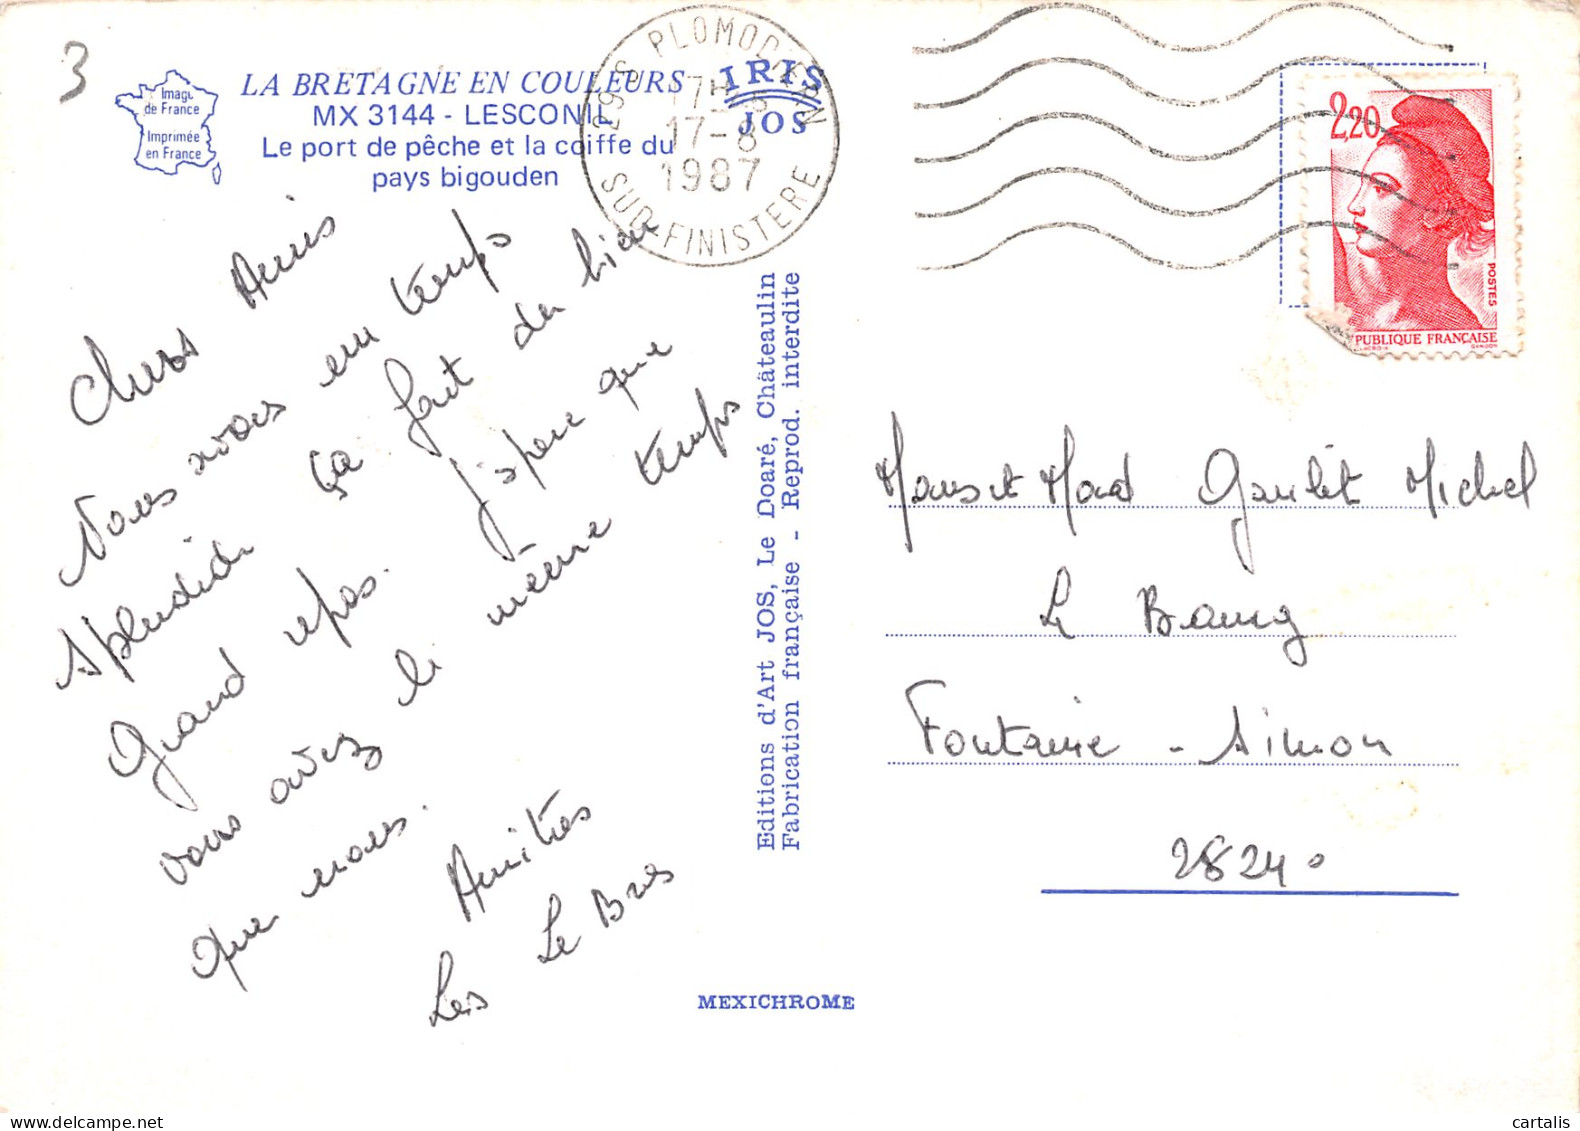 3
Image
de France
Imprimée
en France
LA BRETAGNE EN COULEURS
MX 3144 - LESCONIL
Le port de pêche et la coiffe du
pays bigouden
IRIS
JOS
29 S PLOMODIERN
17-8
1987
SUD-FINISTERE
2,20
POSTES
PUBLIQUE FRANÇAISE
GANDON
Chers Amis
Nous avons eu temps
splendide ça fait du bien
Grand repos. J'espère que
vous avez le même temps
que nous.
Amitiés
Les Le Bras
Editions d'Art JOS, Le Doaré, Châteaulin
Fabrication française - Reprod. interdite
MEXICHROME
Mons et Mad Goulet Michel
Le Bourg
Fontaine - Simon
28240